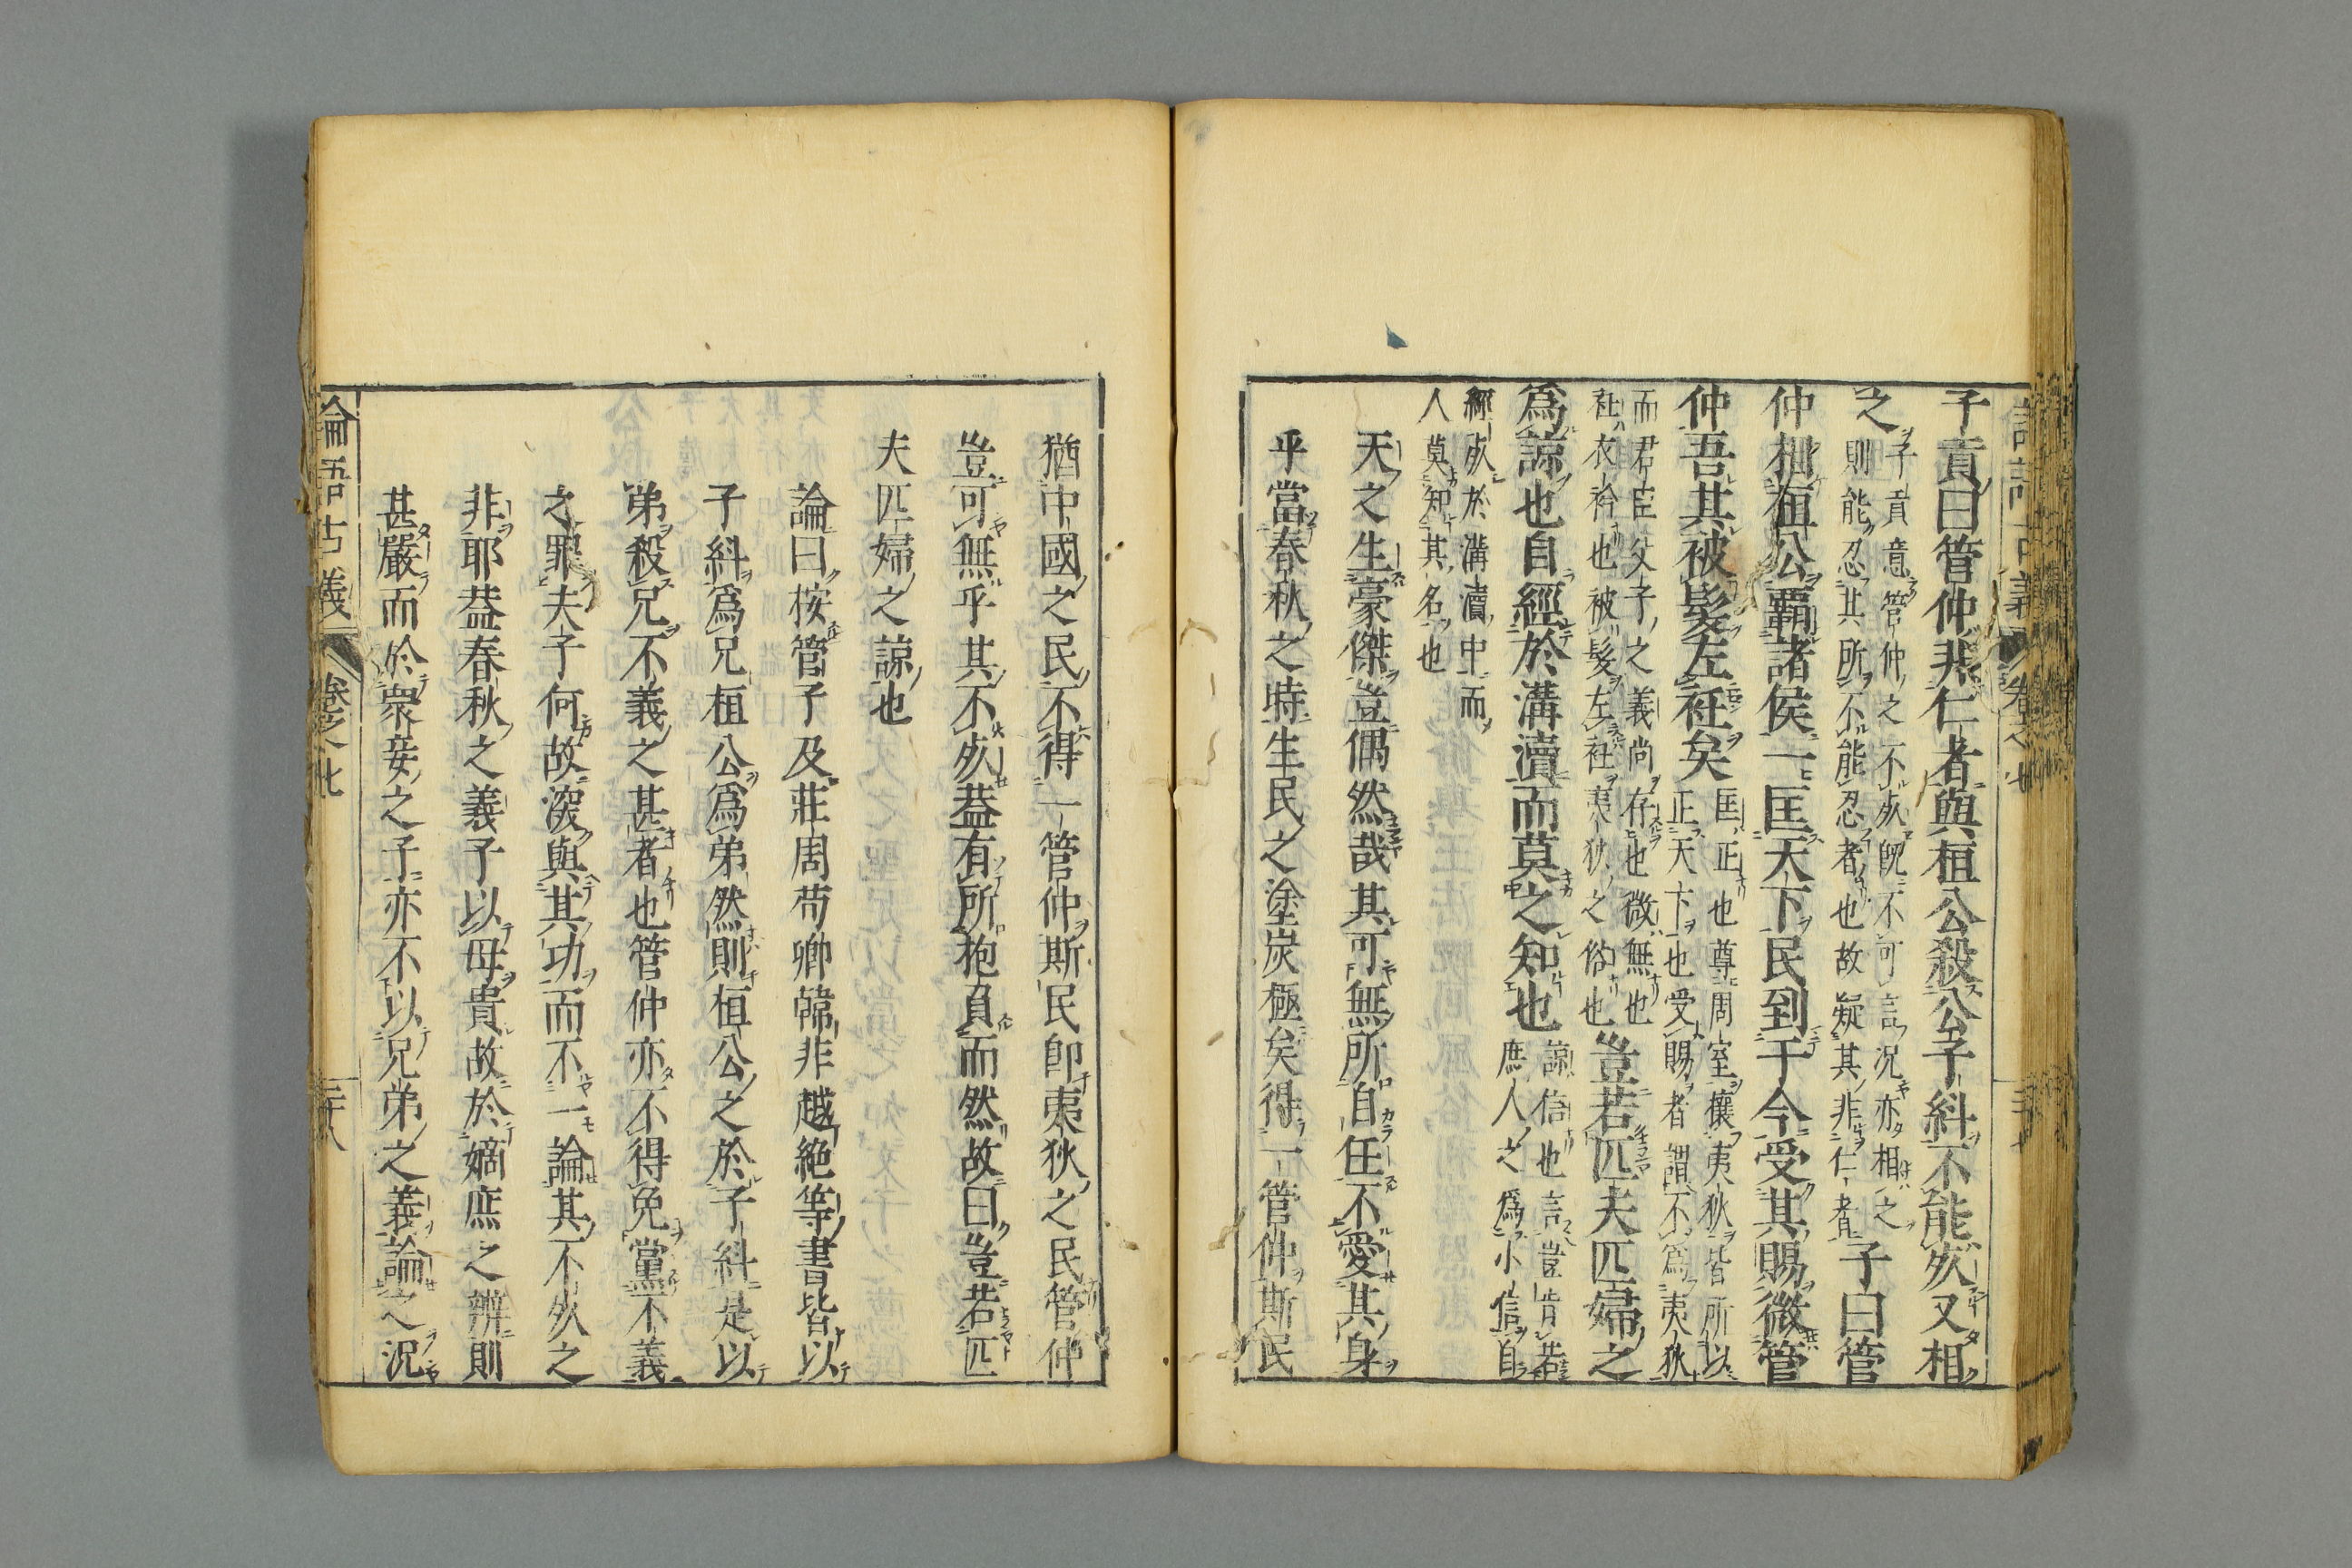 子貢曰管仲非仁者與桓公殺公子糾不能死又相
之
子貢意管仲之不死既不可言況亦相之
則能忍其所不能忍者也故疑其非仁者
子曰管
仲相桓公霸諸侯一匡天下民到于今受其賜微管
仲吾其被髮左衽矣
匡正也尊周室攘夷狄皆所以
正天下也受賜者謂不爲夷狄
而君臣父子之義尚存也微無也
衽衣衿也被髮左衽夷狄之俗也
豈若匹夫匹婦之
爲諒也自經於溝瀆而莫之知也
諒信也言豈肯若
庶人之爲小信自
經死於溝瀆中而
人莫知其名也
天之生豪傑豈偶然哉其可無所自任不愛其身
乎當春秋之時生民之塗炭極矣得一管仲斯民
猶中國之民不得一管仲斯民卽夷狄之民管仲
豈可無乎其不死蓋有所抱負而然故曰豈若匹
夫匹婦之諒也
論曰按管子及莊周荀卿韓非越絶等書皆以
子糾爲兄桓公爲弟然則桓公之於子糾是以
弟殺兄不義之甚者也管仲亦不得免黨不義
之罪夫子何故深與其功而不一論其不死之
非耶蓋春秋之義子以母貴故於嫡庶之辨則
甚嚴而於衆妾之子亦不以兄弟之義論之況
論語古義 卷之七 二十八